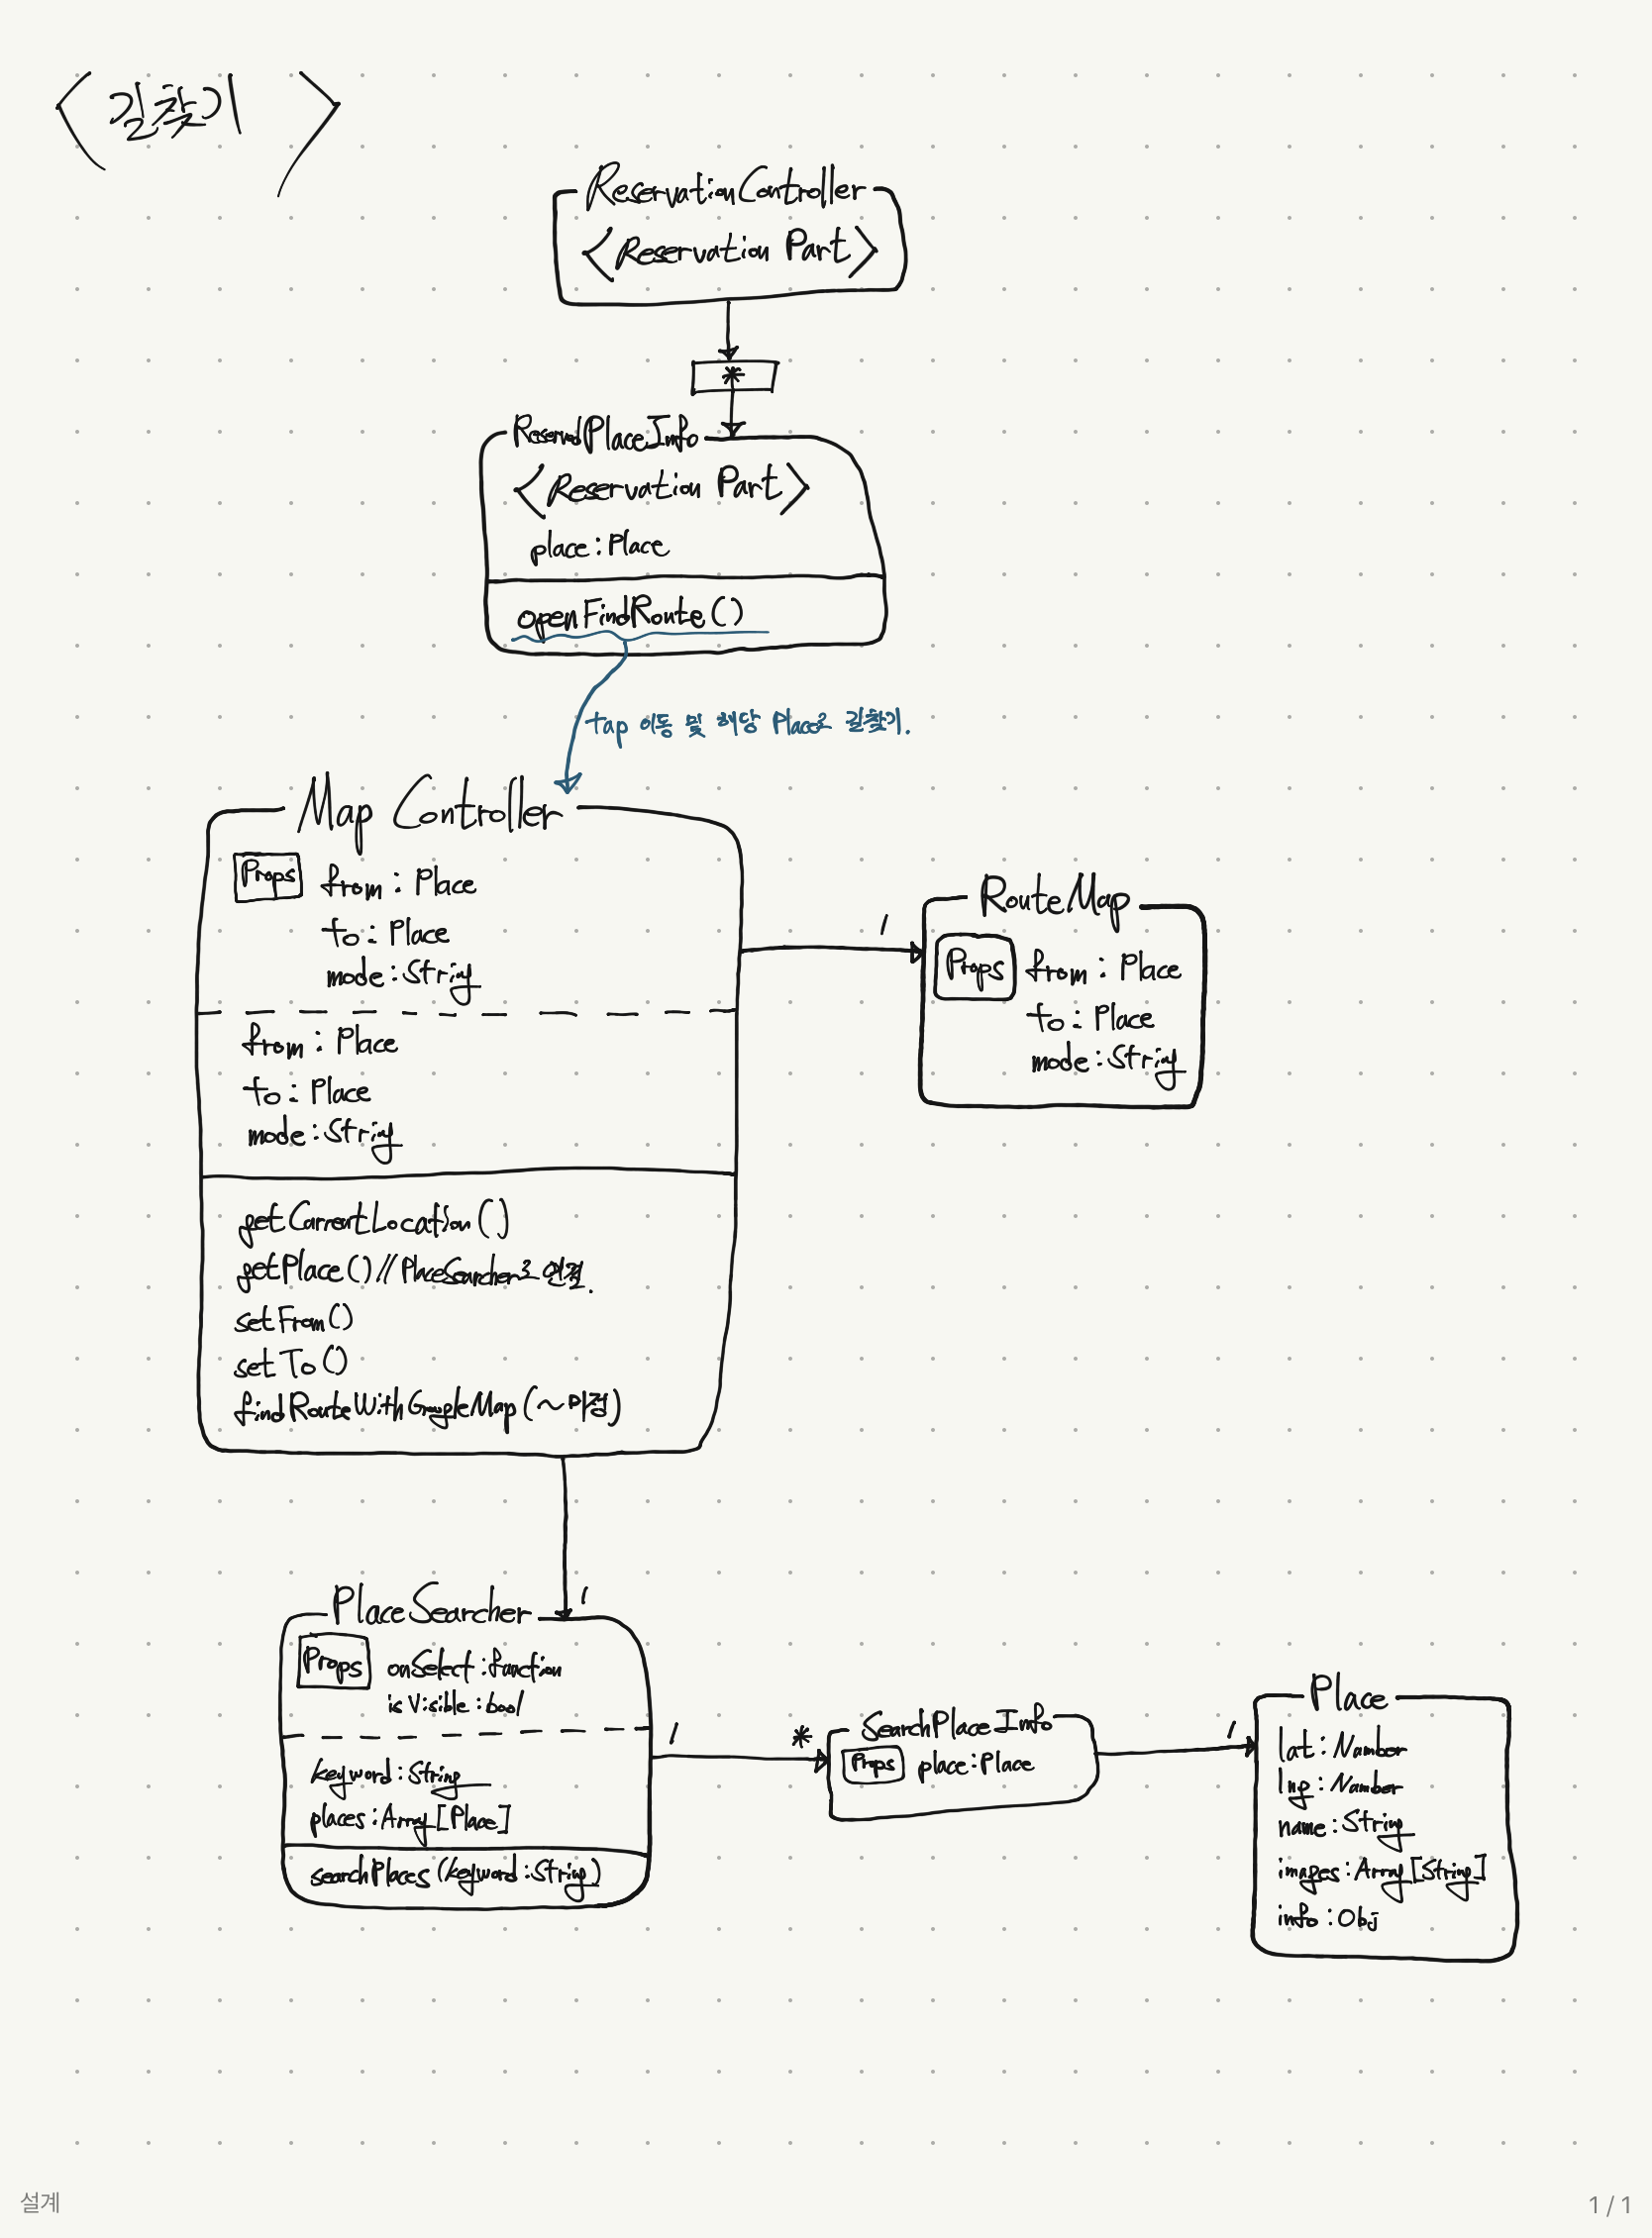 <길찾기>
ReservationController
<Reservation Part>
*
ReservedPlaceInfo
<Reservation Part>
place : Place
openFindRoute ( )
tap 이동 및 해당 Place로 길찾기.
Map Controller
Props from : Place
to : Place
mode : String
from : Place
to : Place
mode : String
getCurrentLocation ( )
getPlace ( ) // PlaceSearcher로 연결.
setFrom ( )
setTo ( )
findRouteWithGoogleMap (~미정)
1
RouteMap
Props from : Place
to : Place
mode : String
1
PlaceSearcher
Props onSelect : function
isVisible : bool
keyword : String
places : Array [Place]
searchPlaces (keyword : String)
1
*
SearchPlaceInfo
Props place : Place
1
Place
lat : Number
lng : Number
name : String
images : Array [String]
info : Obj
설계
1 / 1